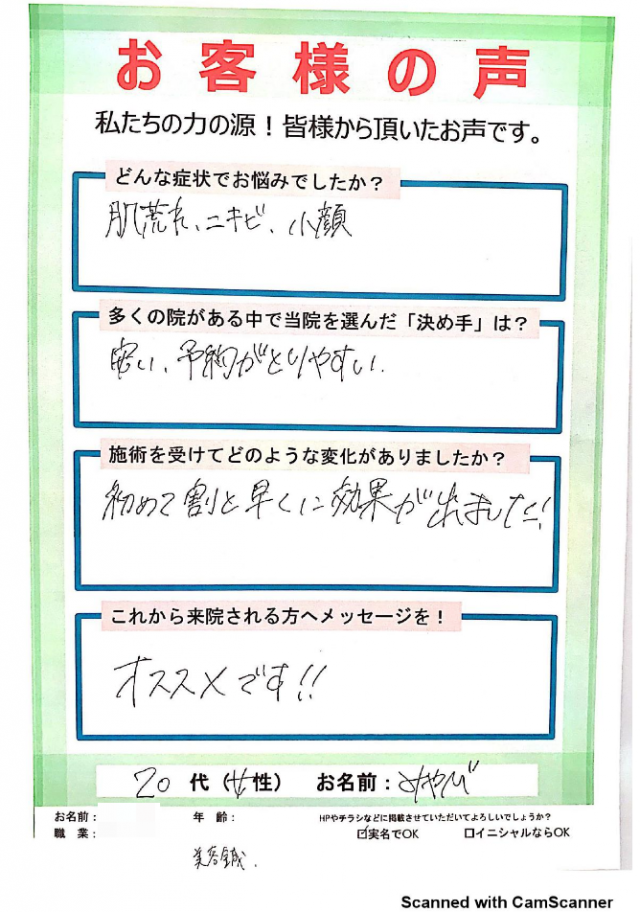 お客様の声
私たちの力の源！皆様から頂いたお声です。
どんな症状でお悩みでしたか？
肌荒れ、ニキビ、小顔
多くの院がある中で当院を選んだ「決め手」は？
安い、予約がとりやすい.
施術を受けてどのような変化がありましたか？
初めて割と早くに効果が出ました!
これから来院される方へメッセージを！
オススメです!!
20 代（女性） お名前：みやび
お名前： 年 齢： HPやチラシなどに掲載させていただいてよろしいでしょうか？
職 業： ☑実名でOK □イニシャルならOK
美容鍼.
Scanned with CamScanner